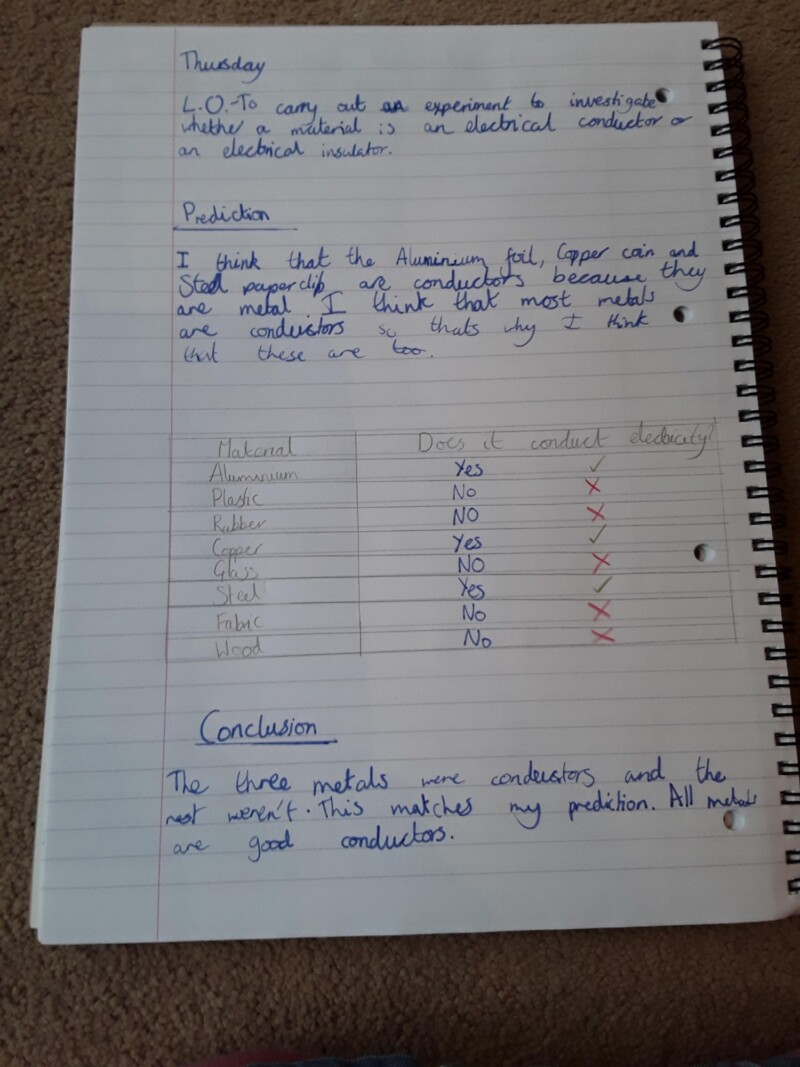 Thursday
L.O.-To carry out an experiment to investigate
whether a material is an electrical conductor or
an electrical insulator.
Prediction
I think that the Aluminium foil, Copper coin and
Steel paperclip are conductors because they
are metal. I think that most metals
are conductors so thats why I think
that these are too.
Material Does it conduct electricity?
Aluminium Yes ✓
Plastic No ✗
Rubber NO ✗
Copper Yes ✓
Glass NO ✗
Steel Yes ✓
Fabric No ✗
Wood No ✗
Conclusion
The three metals were conductors and the
rest weren't. This matches my prediction. All metals
are good conductors.